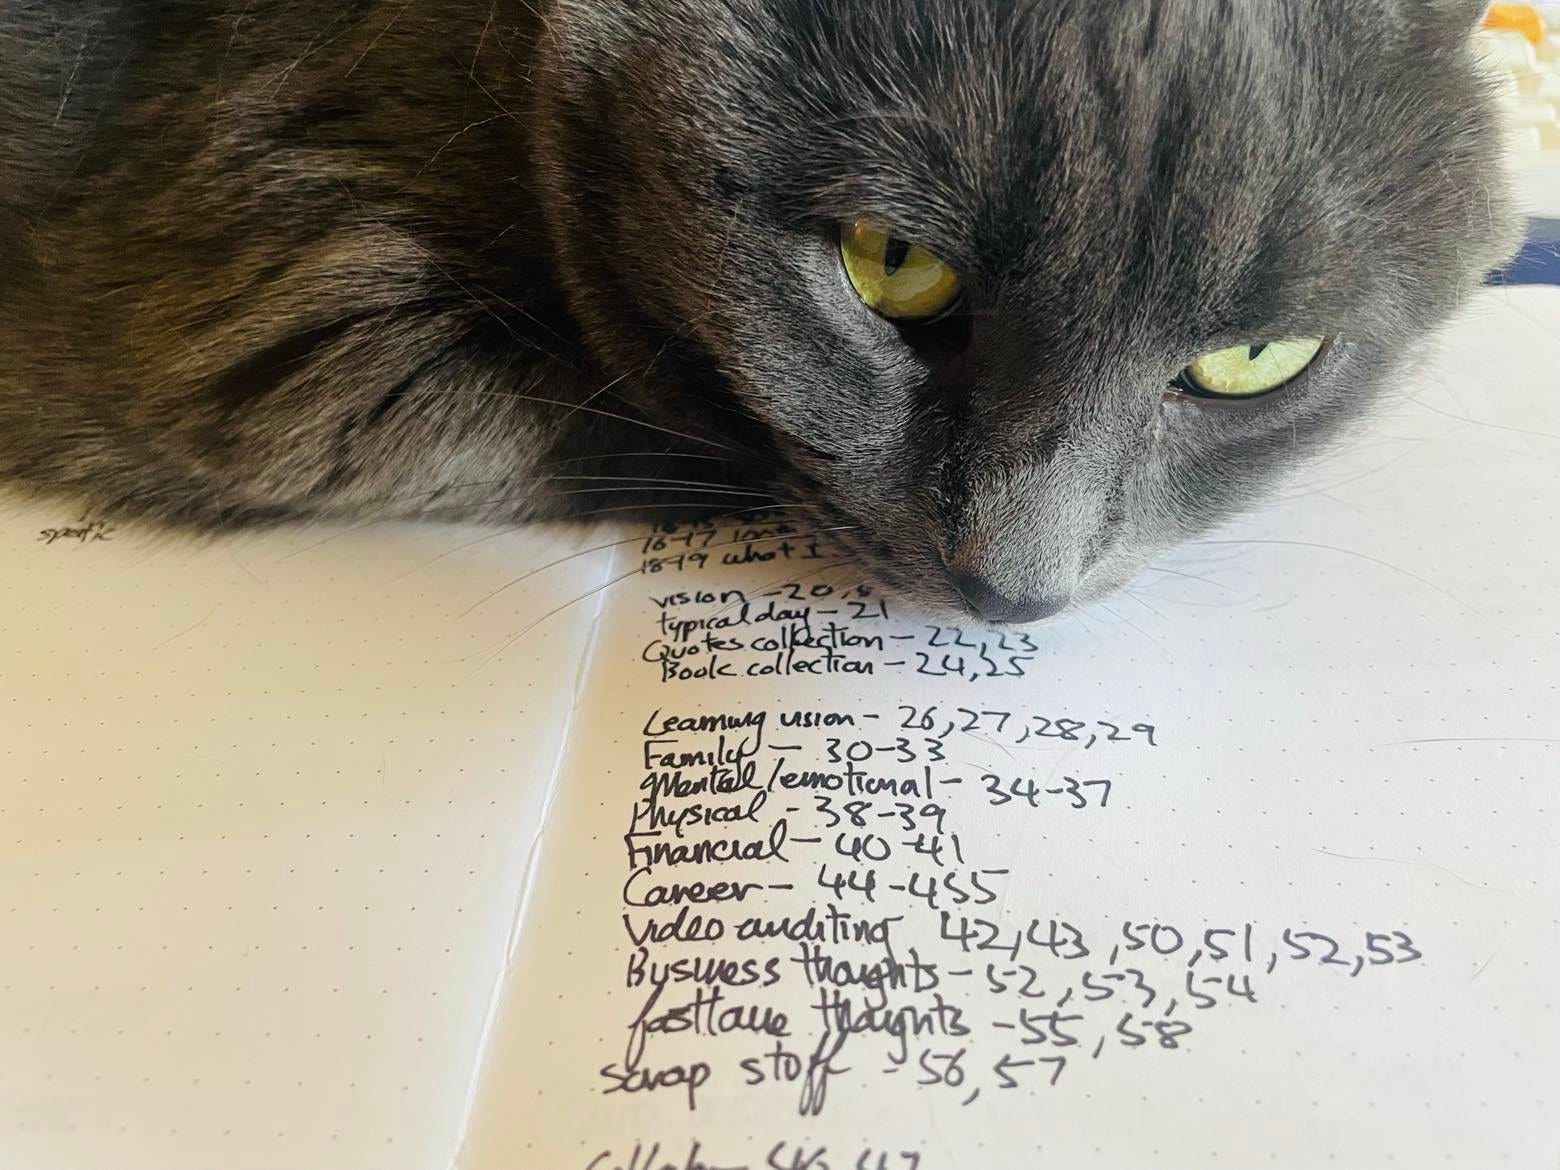 specific
16-17
18-19 what I
vision - 20,
typical day - 21
Quotes collection - 22,23
Book collection - 24,25
Learning vision - 26,27,28,29
Family - 30-33
Mental/emotional - 34-37
Physical - 38-39
Financial - 40-41
Career - 44-455
Video auditing 42,43,50,51,52,53
Bysuness thoughts - 52,53,54
fastlane thoughts - 55,58
scrap stoff - 56,57
46,47